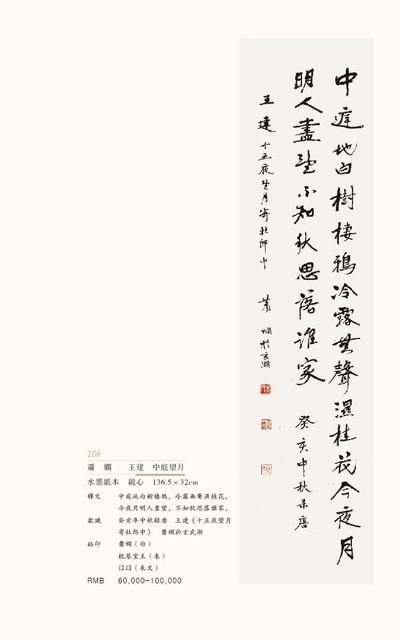 中庭地白樹棲鴉冷露無聲濕桂花今夜月
明人盡望不知秋思落誰家 癸亥中秋录唐
王建十五夜望月寄杜郎中 蕭嫻於玄湖
106
蕭 嫻 王建 中庭望月
水墨紙本 鏡心 136.5×32cm
釋文 中庭地白樹棲鴉，冷露無聲濕桂花。
今夜月明人盡望，不知秋思落誰家。
款識 癸亥年中秋録唐 王建《十五夜望月
寄杜郎中》 蕭嫻於玄武湖
鈐印 蕭嫻（白）
枕琴室主（朱）
口口（朱文）
RMB 60,000-100,000